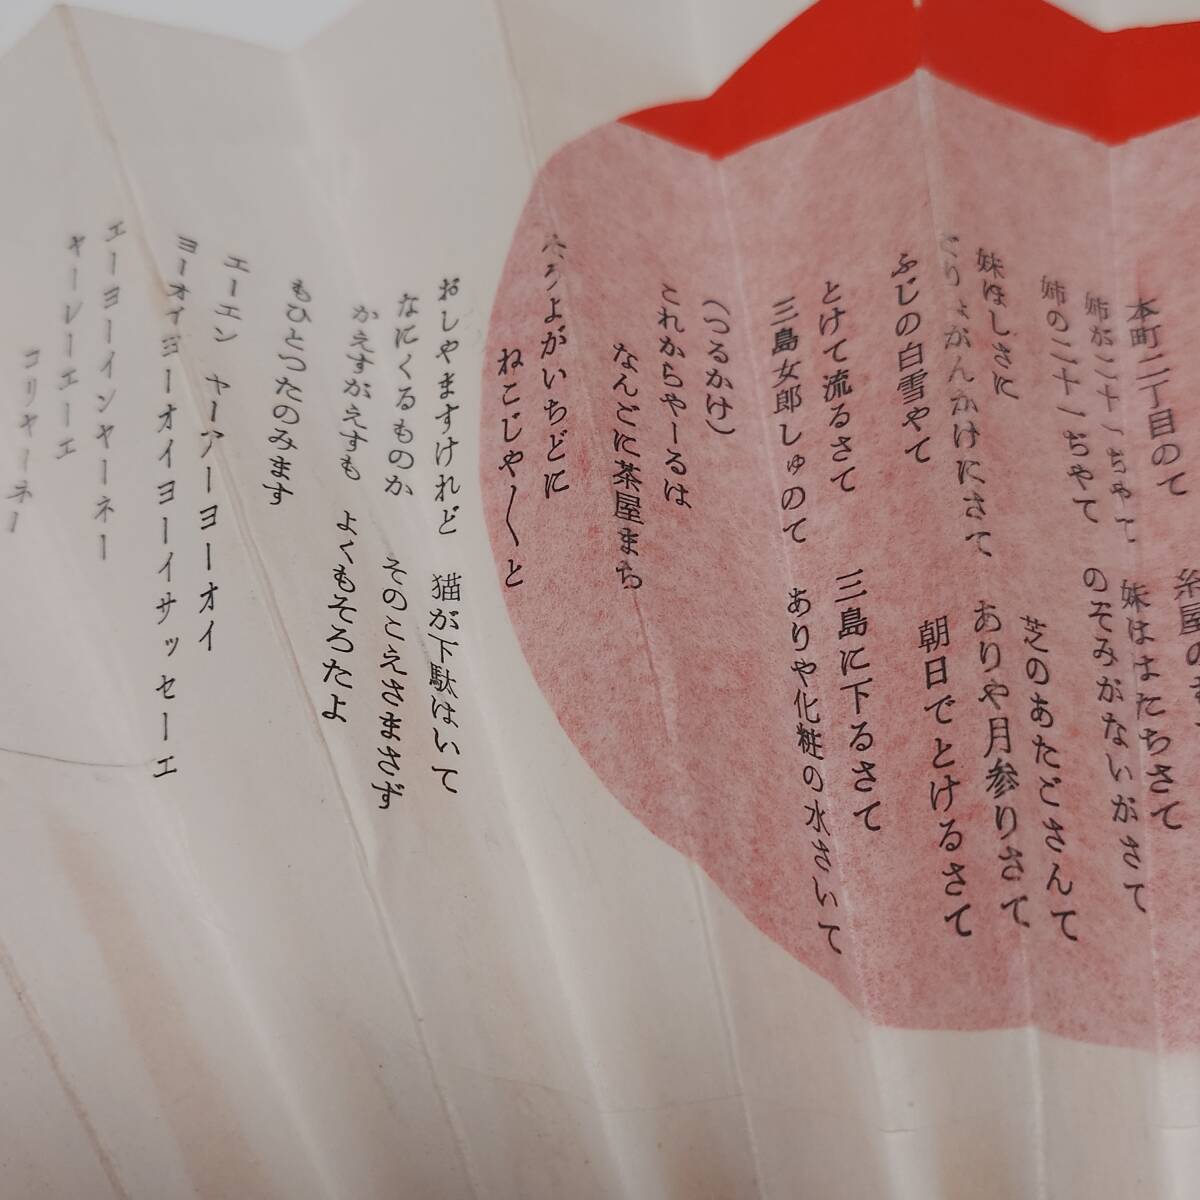 本町二丁目のて 糸屋の
姉が二十一ちやて 妹ははたちさて
姉の二十一ちやて のぞみがないがさて
妹ほしさに 芝のあたごさんて
ごりょがんかけにさて ありや月参りさて
ふじの白雪やて 朝日でとけるさて
とけて流るさて 三島に下るさて
三島女郎しゅのて ありや化粧の水さいて
（つるかけ）
これからやーるは
なんごに茶屋まち
よがいちどに
ねこじや〱と
おしやますけれど 猫が下駄はいて
なにくるものか そのこえさまさず
かえすがえすも よくもそろたよ
もひとつたのみます
エーエン ヤーアーヨーオイ
ヨーオイヨーオイヨーイサッセーエ
エーヨーインヤーネー
ヤーレーエーエ
コリャーネー